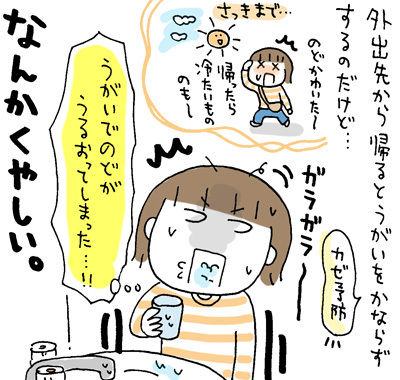 外出先から帰ると、うがいをかならず
するのだけど…
さっきまで…
のどかわいた〜
帰ったら
冷たいもの
のも〜
カゼ予防
ガラガラ〜
うがいでのどが
うるおってしまった…!!
なんかくやしい。